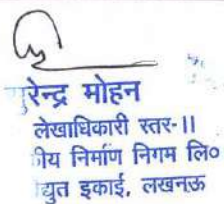 रेन्द्र मोहन
लेखाधिकारी स्तर-II
ीय निर्माण निगम लि०
द्युत इकाई, लखनऊ